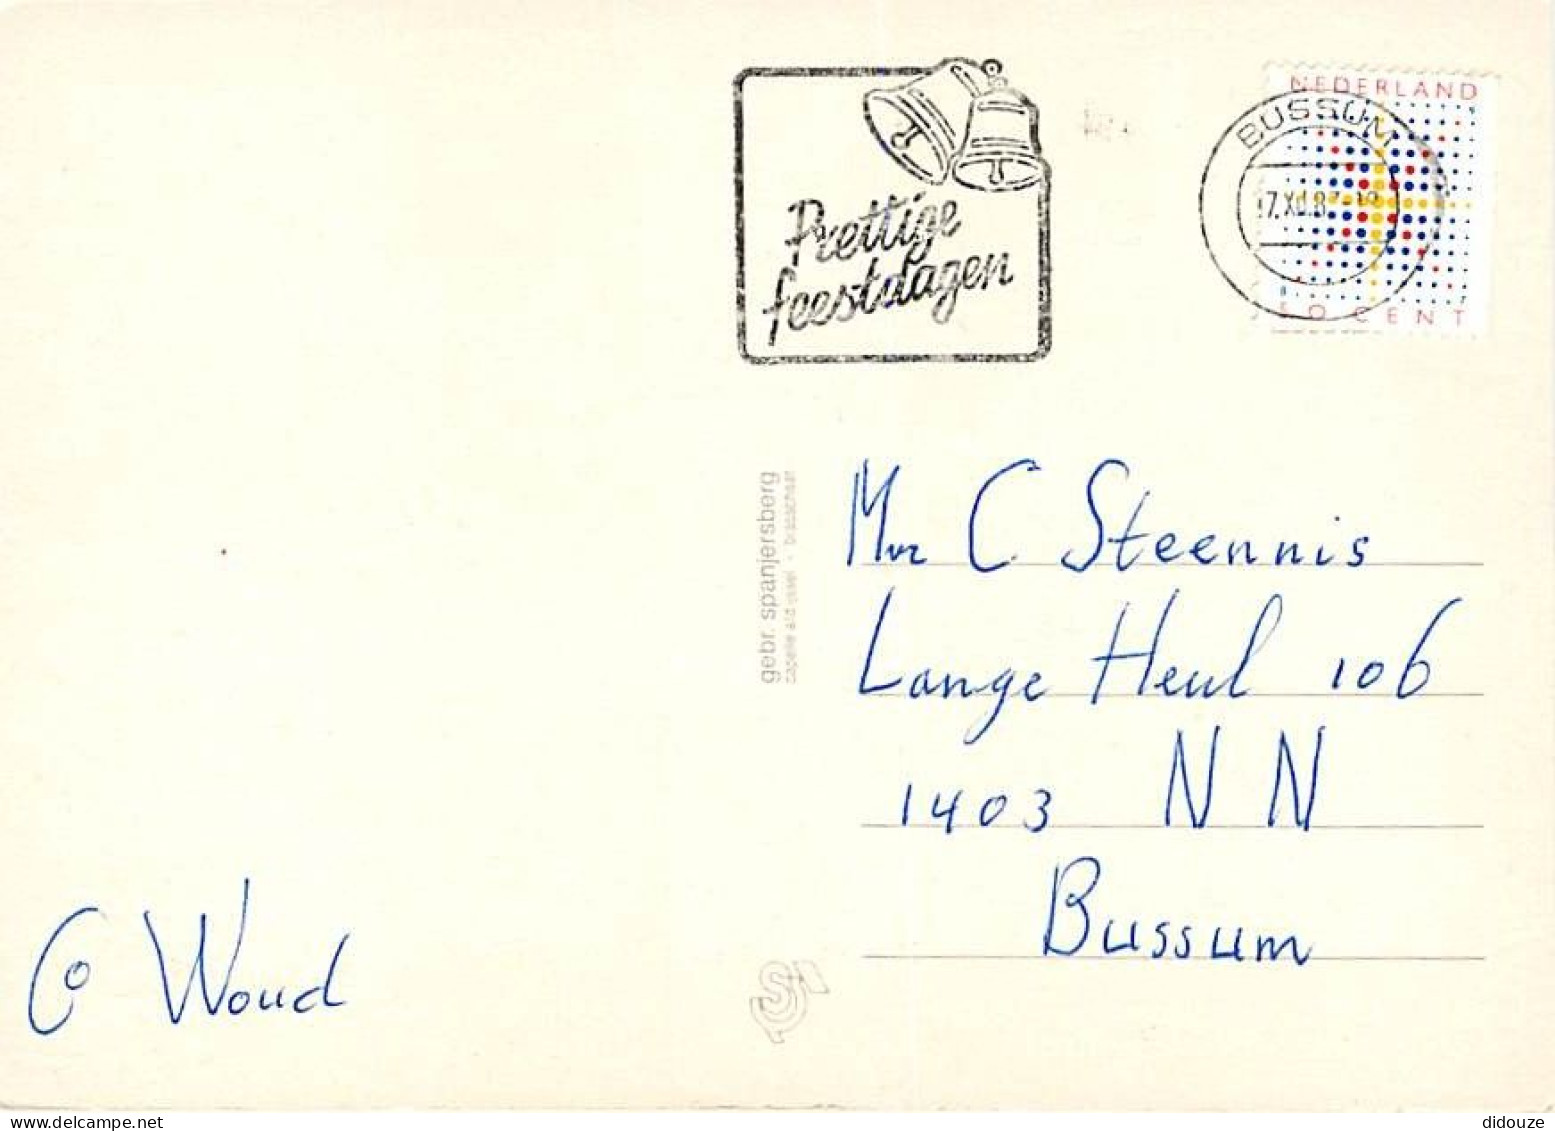 Prettige
feestdagen
NEDERLAND
BUSSUM
50 CENT
gebr. spanjersberg
capelle a/d ijssel - brasschaat
Mvr C Steennis
Lange Heul 106
1403 NN
Bussum
Co Woud
didouze